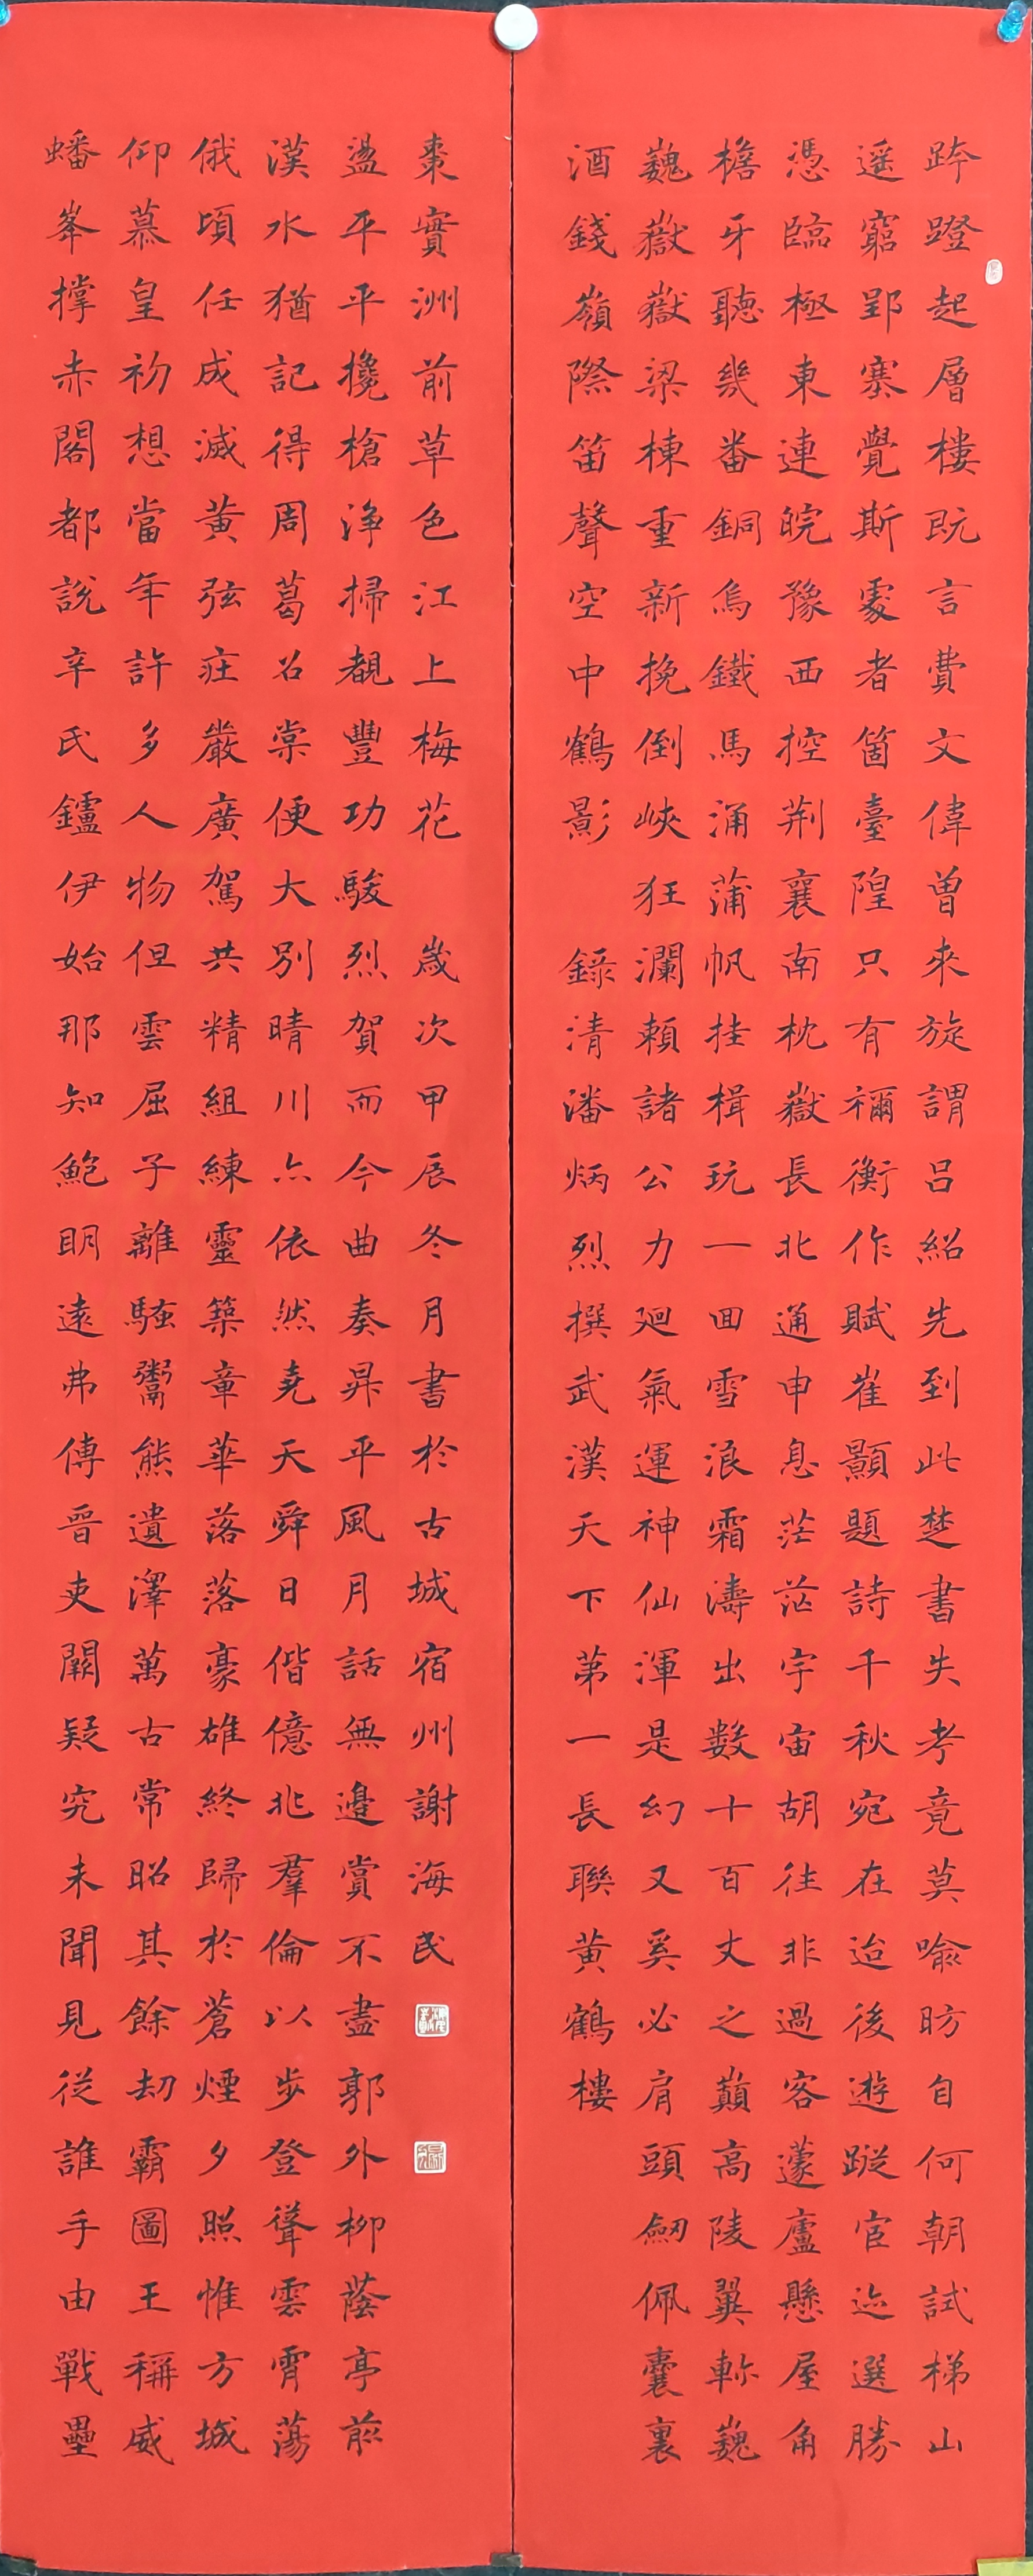 跻蹬起層樓既言費文偉曾來旋謂呂紹先到此楚書失考竟莫喻昉自何朝試梯山
遥窮郢塞覺斯處者箇臺隍只有禰衡作賦崔顥題詩千秋宛在迨後遊蹤宦迹選勝
憑臨極東連皖豫西控荆襄南枕嶽長北通申息茫茫宇宙胡往非過客蘧廬懸屋角
檐牙聽幾番銅烏鐵馬涌蒲帆挂楫玩一回雪浪霜濤出數十百丈之巔高陵翼軫巍
巍嶽嶽梁棟重新挽倒峽狂瀾賴諸公力廻氣運神仙渾是幻又奚必肩頭劒佩囊裏
酒錢嶺際笛聲空中鶴影 錄清潘炳烈撰武漢天下第一長聯黄鶴樓
蟠峯撑赤閣都說辛氏鑪伊始那知鮑明遠弗傳晉吏闕疑究未聞見從誰手由戰壘
仰慕皇初想當年許多人物但雲屈子離騷鬻熊遺澤萬古常昭其餘劫霸圖王稱威
俄頃任成滅黄弦莊嚴廣駕共精組練靈築章華落落豪雄終歸於蒼煙夕照惟方城
漢水猶記得周葛召棠便大別晴川亦依然堯天舜日偕億兆羣倫以步登聳雲霄蕩
盪平平攙槍淨掃覩豐功駿烈賀而今曲奏昇平風月話無邊賞不盡郭外柳蔭亭前
棗實洲前草色江上梅花 歲次甲辰冬月書於古城宿州謝海民